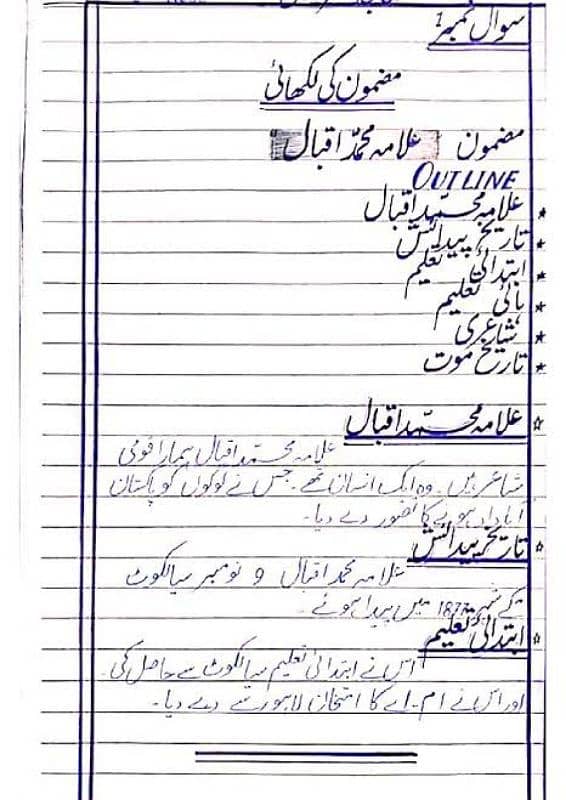 سوال نمبر 1
مضمون کی لکھائی
مضمون علامہ محمد اقبال
OUTLINE
* علامہ محمد اقبال
* تاریخ پیدائش
* ابتدائی تعلیم
* ہائی تعلیم
* شاعری
* تاریخ موت
* علامہ محمد اقبال
علامہ محمد اقبال ہمارا قومی
شاعر ہیں۔ وہ ایک انسان تھے۔ جس نے لوگوں کو پاکستان
ہونے کا تصور دے دیا۔
* تاریخ پیدائش
علامہ محمد اقبال 9 نومبر سیالکوٹ
کے شہر 1877 میں پیدا ہوئے۔
* ابتدائی تعلیم
اس نے ابتدائی تعلیم سیالکوٹ سے حاصل کی۔
اور اس نے ایم۔اے کا امتحان لاہور سے دے دیا۔